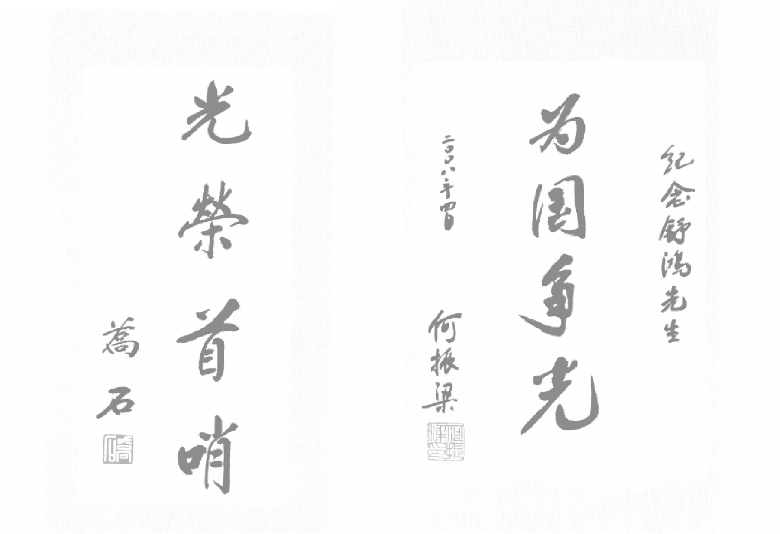 纪念舒鸿先生
为国争光
二〇〇八年四月
何振梁
光榮首哨
喬石